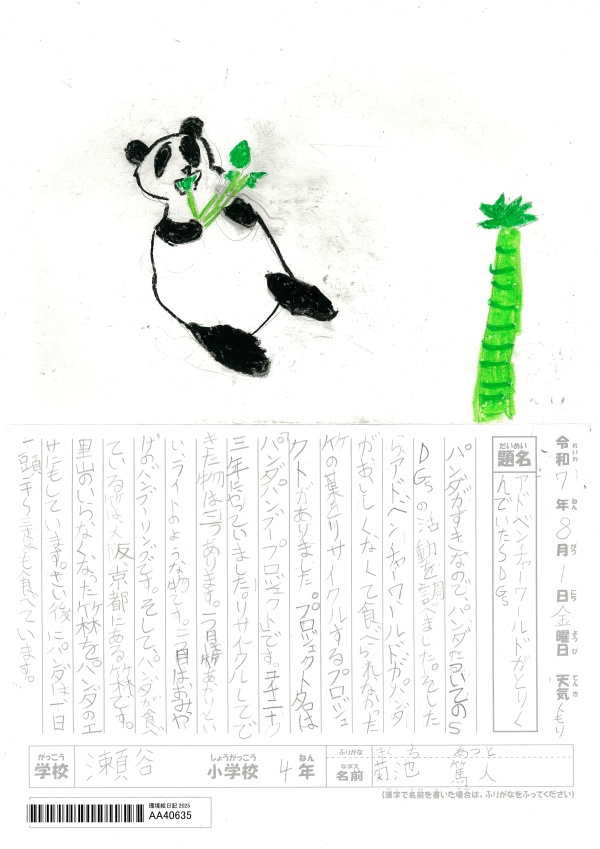 令和7年8月1日金曜日 天気くもり
題名 アドベンチャーワールドがとりく
んでいたSDGs
パンダがすきなので、パンダについてのS
DGsの活動を調べました。そした
らアドベンチャーワールドがパンダ
がおいしくなくて食べられなかった
竹の葉をリサイクルするプロジェ
クトがありました。プロジェクト名は
「パンダバンブープロジェクト」です。
三年にやっていました。リサイクルしてで
きた物は二つあります。一つ目は竹あかりとい
いライトのような物です。二つ目はおみや
げのバンブーリングです。そして、パンダが食べ
ている竹は大阪京都にある竹林です。
里山のいらなくなった竹林を。パンダのエ
サにもしています。さい後にパンダは一日
一頭
も食べています。
がっこう 学校 瀬谷 しょうがっこう 小学校 4年
ふりがな きくち あつと
なまえ 名前 菊池 篤人
(漢字で名前を書いた場合は、ふりがなをふってください)
環境絵日記 2025
AA40635